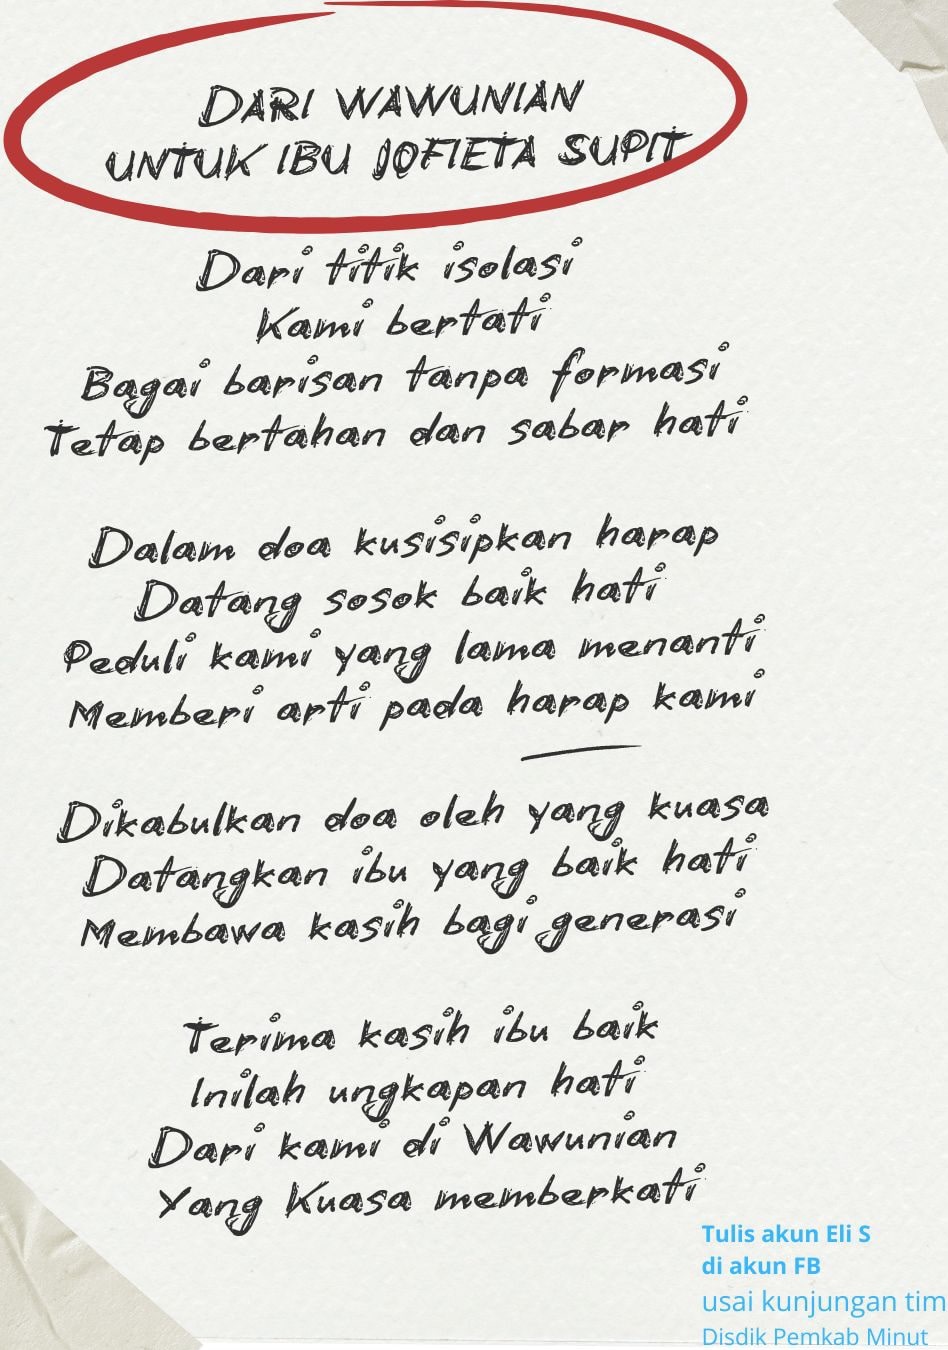 DARI WAWUNIAN
UNTUK IBU JOFIETA SUPIT
Dari titik isolasi
Kami bertati
Bagai barisan tanpa formasi
Tetap bertahan dan sabar hati
Dalam doa kusisipkan harap
Datang sosok baik hati
Peduli kami yang lama menanti
Memberi arti pada harap kami
Dikabulkan doa oleh yang kuasa
Datangkan ibu yang baik hati
Membawa kasih bagi generasi
Terima kasih ibu baik
Inilah ungkapan hati
Dari kami di Wawunian
Yang Kuasa memberkati
Tulis akun Eli S
di akun FB
usai kunjungan tim
Disdik Pemkab Minut